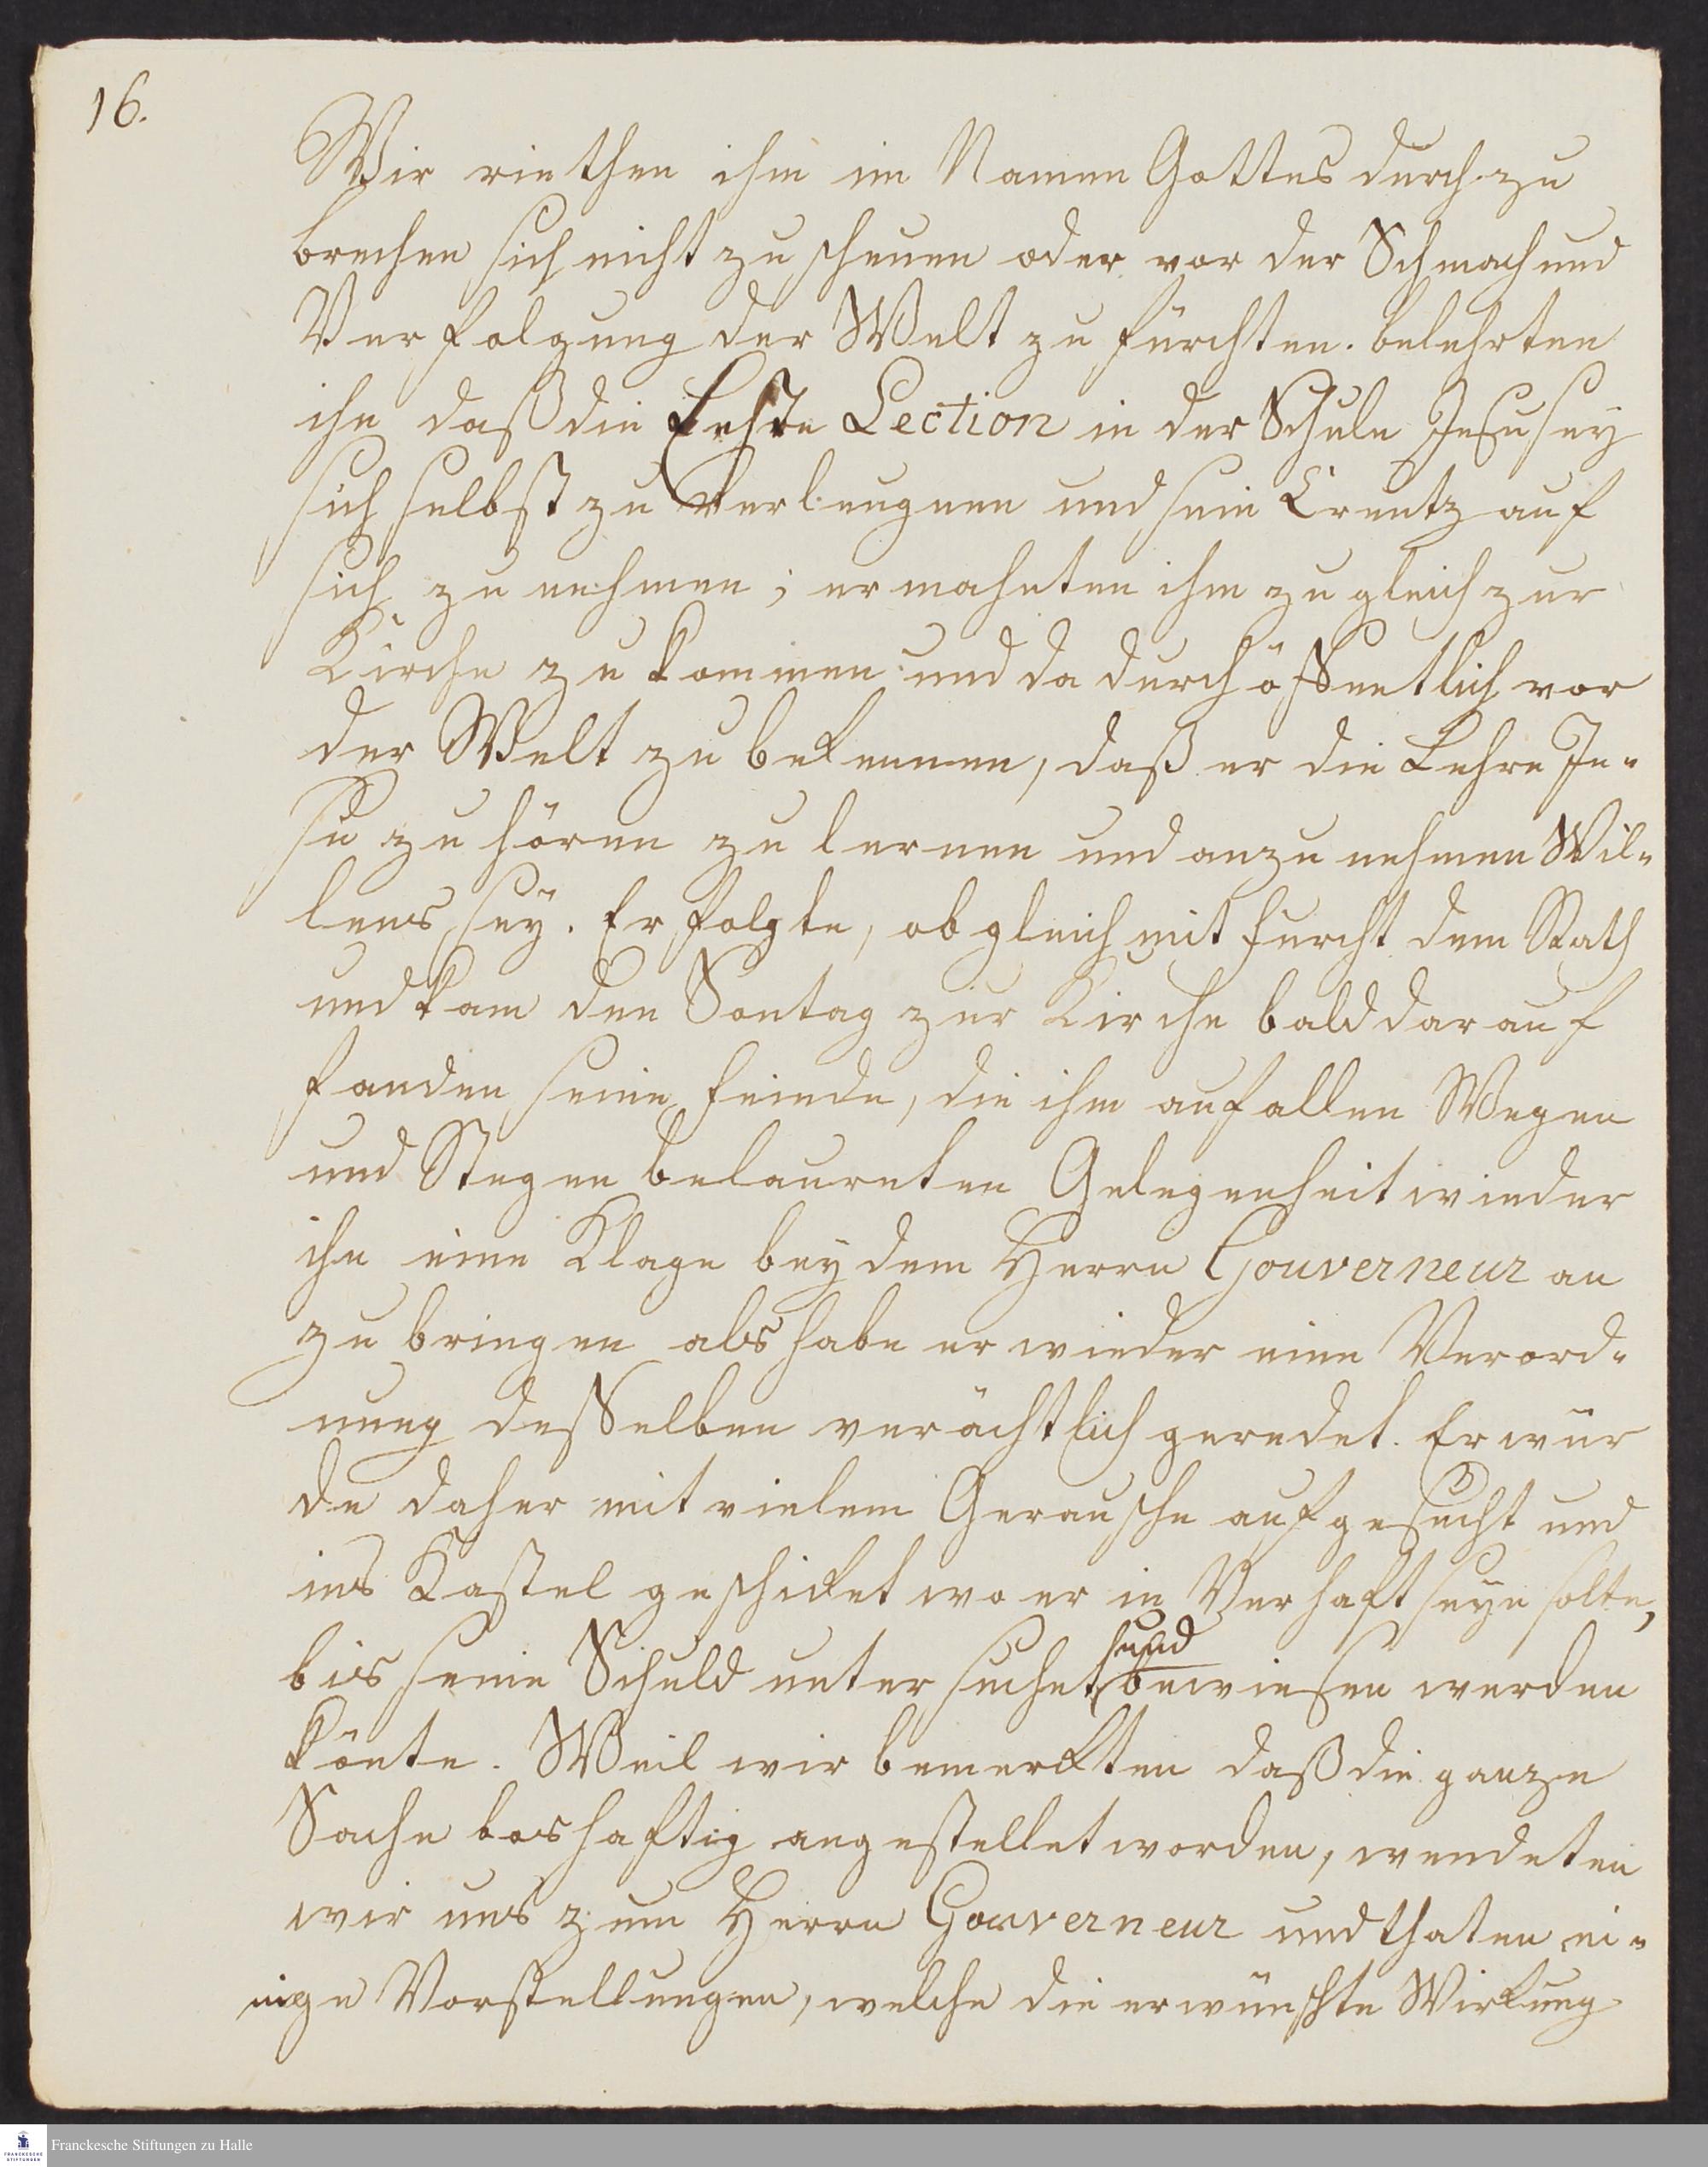 16.
Wir riethen ihm im Namen Gottes durch zu
brechen sich nicht zu scheuen oder vor der Schmach und
Verfolgung der Welt zu fürchten. belehrten
ihn daß die Erste Lection in der Schule Jesu sey
sich selbst zu verleugnen und sein Creutz auf
sich zu nehmen; ermahnten ihm zugleich zur
Kirche zu kommen und dadurch öffentlich vor
der Welt zu bekennen, daß er die Lehre Je-
su zu hören zu lernen und anzunehmen Wil-
lens sey. Er folgte, obgleich mit Furcht dem Rath
und kam den Sontag zur Kirche bald darauf
fanden seine Feinde, die ihm auf allen Wegen
und Stegen belaureten Gelegenheit wieder
ihn eine Klage bey dem Herrn Gouverneur an
zu bringen als habe er wieder eine Verord-
nung desselben verächtlich geredet. Er wur
de daher mit vielem Gerausche aufgesucht und
ins Kastel geschicket wo er in Verhaft seyn solte,
bis seine Schuld untersuchet und bewiesen werden
könte. Weil wir bemerkten daß die ganze
Sache boshaftig angestellet worden, wendeten
wir uns zum Herrn Gouverneur und thaten ei-
nige Vorstellungen, welche die erwünschte Wirkung
Franckesche Stiftungen zu Halle
FRANCKESCHE
STIFTUNGEN